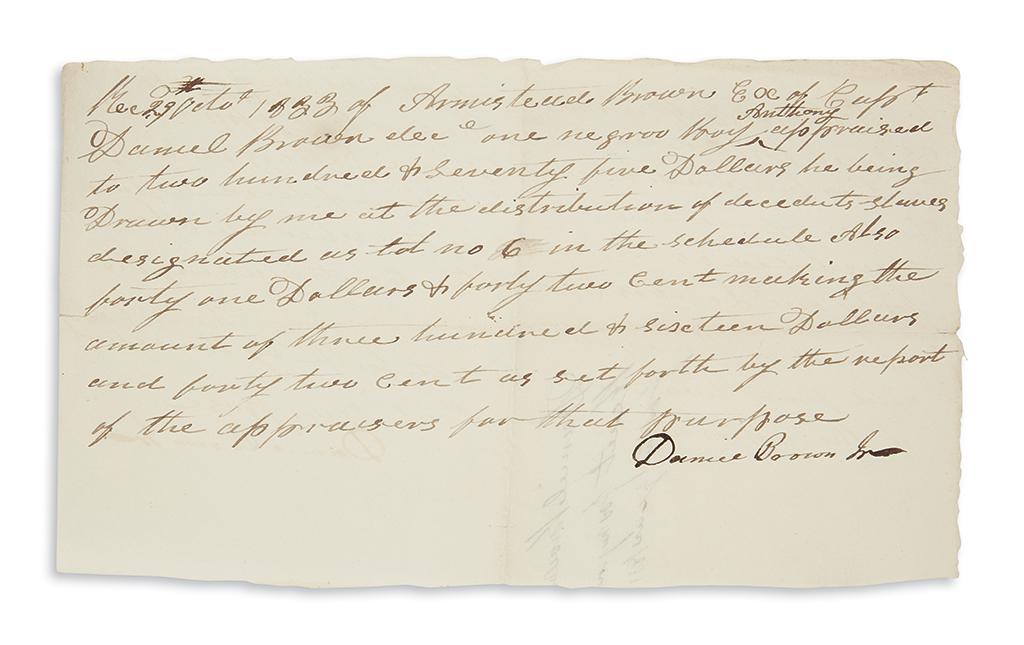 Recd 29th Octor 1833 of Armistead Brown Ex of Capt
Daniel Brown dece one negroo boy Anthony appraised
to two hundred & seventy five Dollars he being
Drawn by me at the distribution of decedts slaves
designated as td no 6 in the schedule Also
forty one Dollars & forty two Cent making the
amount of three hundred & sixteen Dollars
and forty two Cent as set forth by the report
of the appraisers for that purpose
Daniel Brown Jr